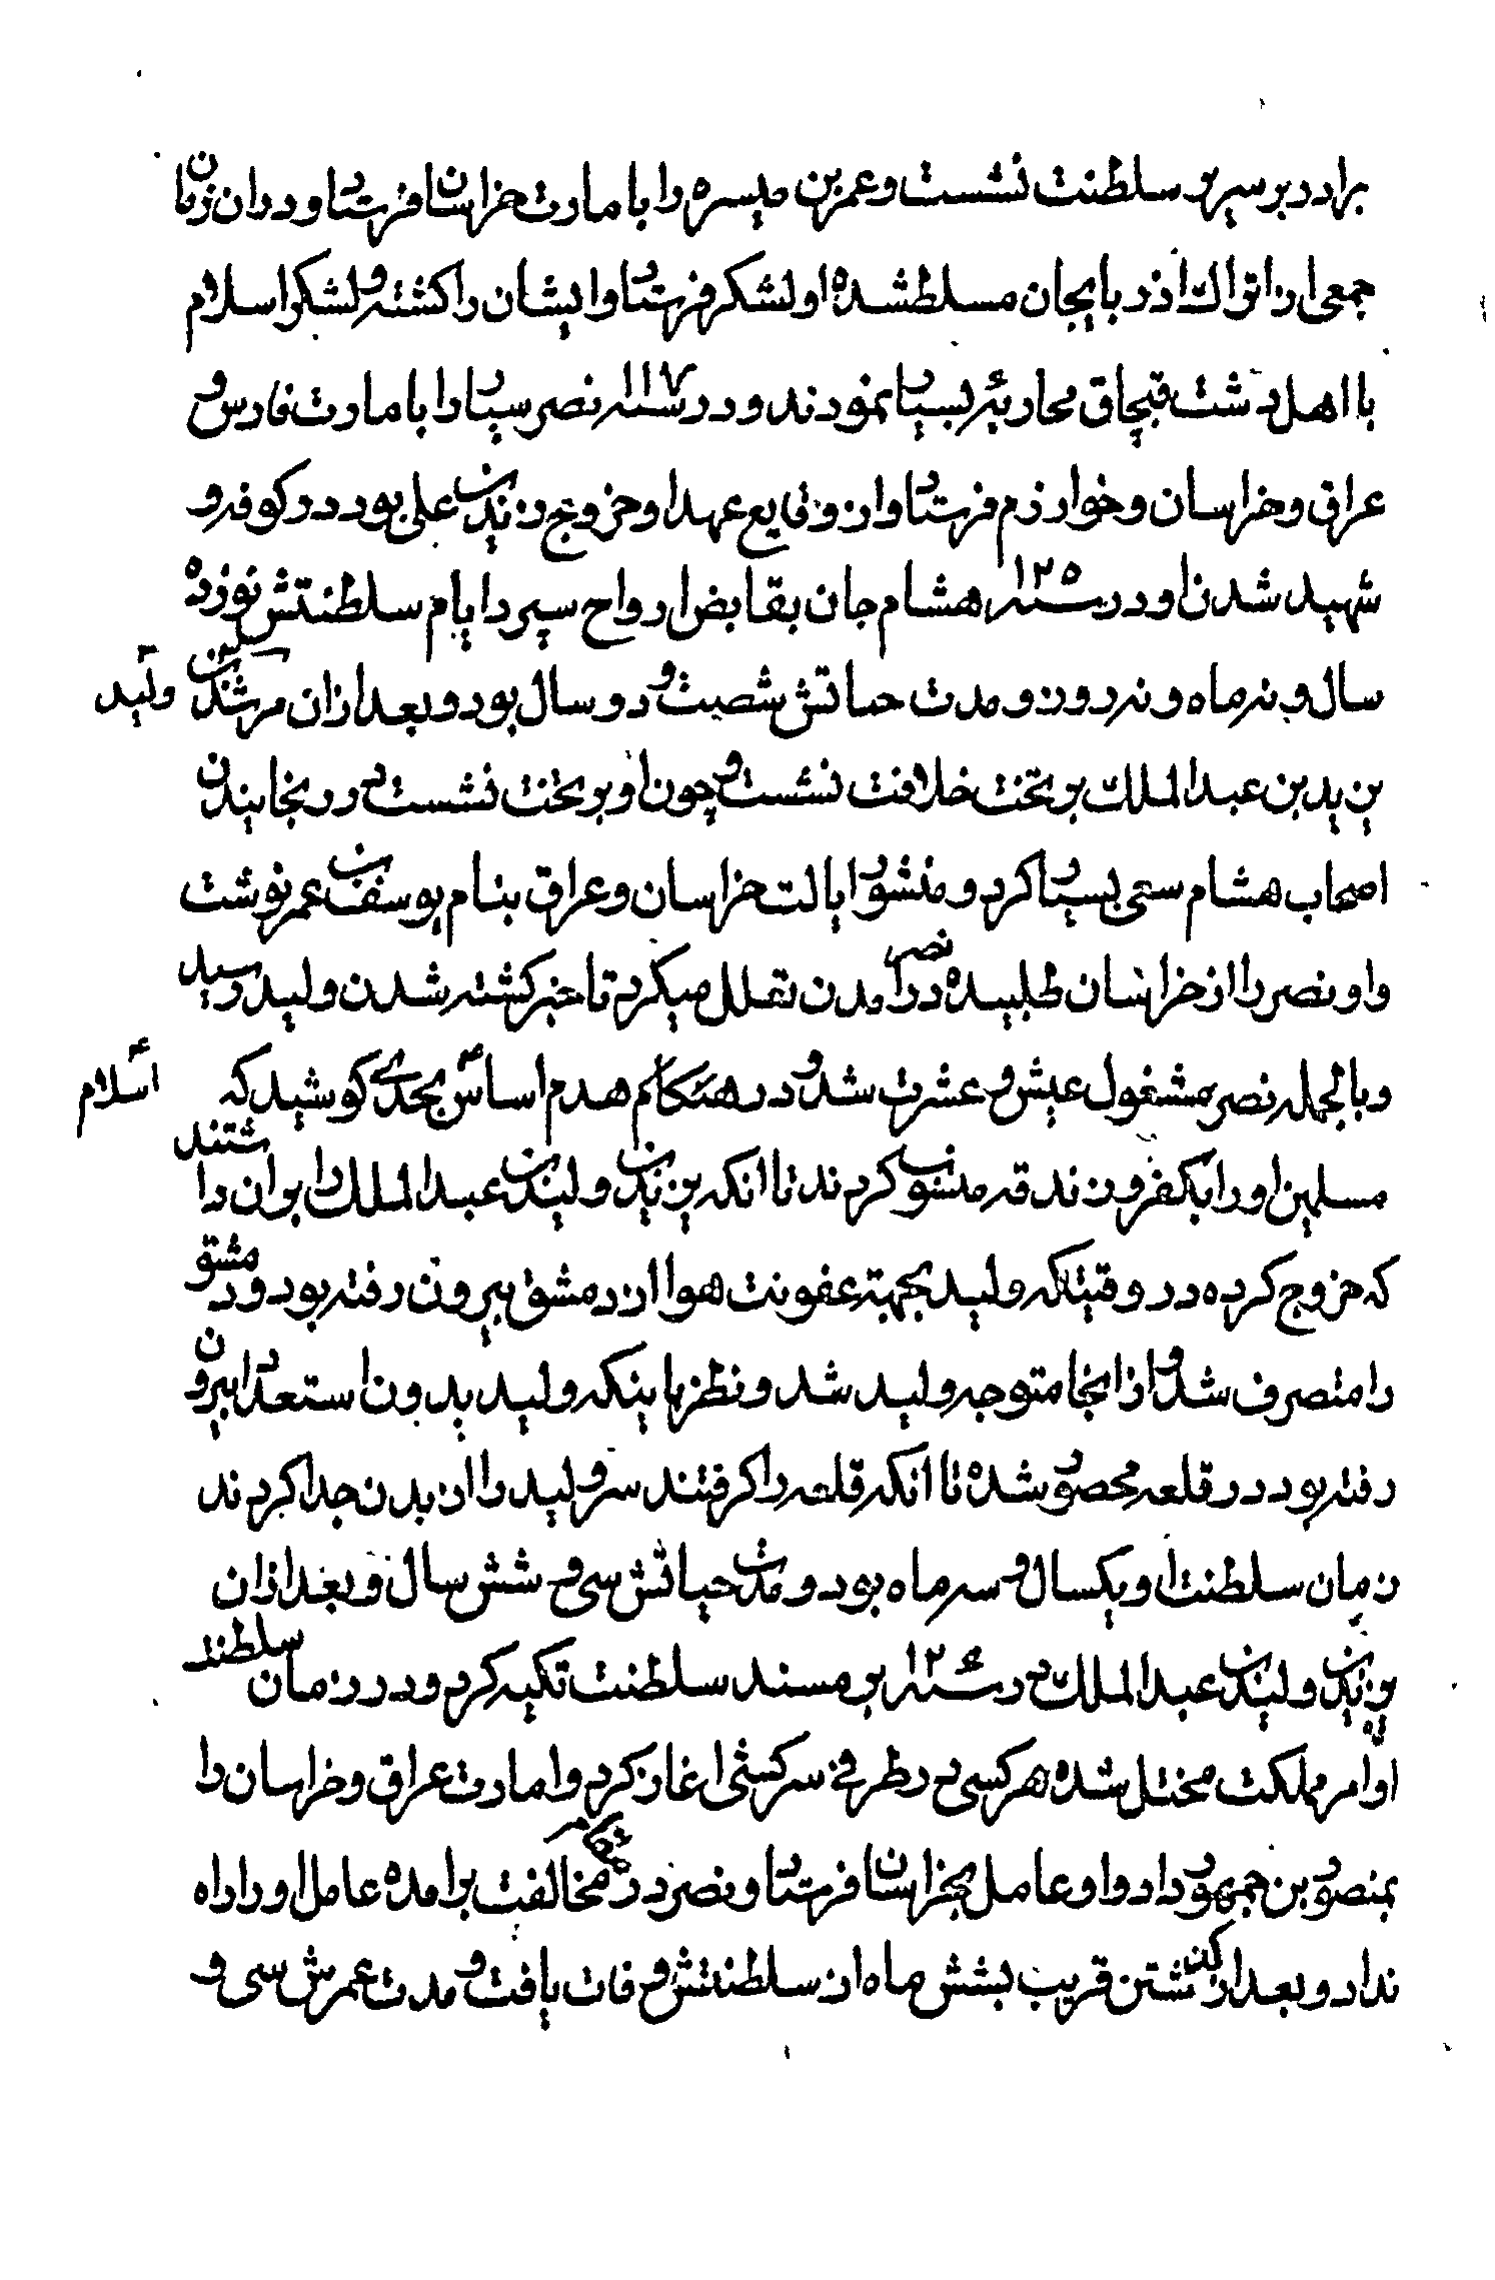 برادر بر سریر سلطنت نشست و عمر بن میسره را بامارت خراسان فرستاد و در ان زمان
جمعی از اتراك اذربایجان مسلط شده او لشکر فرستاد و ایشان را کشته و لشکر اسلام
با اهل دشت قبچاق محاربهٔ بسیار نمودند و در سنه ۱۱۷ نصر سیار را بامارت فارس و
عراق و خراسان و خوارزم فرستاد و از وقایع عهد او خروج زید بن علی بود در کوفه و
شهید شدن او و در سنه ۱۲۵ هشام جان بقابض ارواح سپرد ایام سلطنتش نوزده
سال و نه ماه و نه روز و مدت حیاتش شصت و دو سال بود و بعد از ان ولید
بن یزید بن عبد الملك بر تخت خلافت نشست و چون او بر تخت نشست در رنجانیدن
اصحاب هشام سعی بسیار کرد و منشور ایالت خراسان و عراق بنام یوسف بن عمر نوشت
و او نصر را از خراسان طلبیده نصر در امدن تعلل میکرد تا خبر کشته شدن ولید رسید
و بالجمله نصر مشغول عیش و عشرت شد و در هنکام هدم اساس اسلام بحدی کوشید که
مسلمین او را بکفر و زندقه منسوب کردند تا انکه یزید بن ولید بن عبد الملك را بر ان داشتند
که خروج کرده در وقتیکه ولید بجهة عفونت هوا از دمشق بیرون رفته بود و دمشق
را متصرف شد و از انجا متوجه ولید شد و نظر باینکه ولید بدون استعداد بیرون
رفته بود در قلعه محصور شده تا انکه قلعه را کرفتند سر ولید را از بدن جدا کردند
زمان سلطنت او یکسال و سه ماه بود و مدت حیاتش سی و شش سال و بعد از ان
یزید بن ولید بن عبد الملك در سنه ۱۲۶ بر مسند سلطنت تکیه کرد و در زمان سلطنت
او امر مملکت مختل شده هر کسی در طرفی سرکشی اغاز کرد و امارت عراق و خراسان را
بمنصور بن جمهور داد و او عامل بخراسان فرستاد و نصر در مقام مخالفت برامده عامل او را راه
نداد و بعد از کذشتن قریب بشش ماه از سلطنتش وفات یافت و مدت عمرش سی و